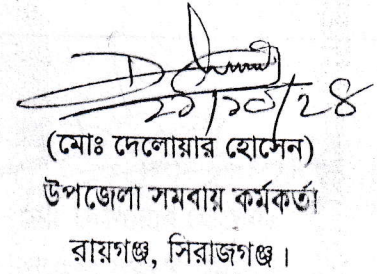 ২১/১০/২৪
(মোঃ দেলোয়ার হোসেন)
উপজেলা সমবায় কর্মকর্তা
রায়গঞ্জ, সিরাজগঞ্জ।